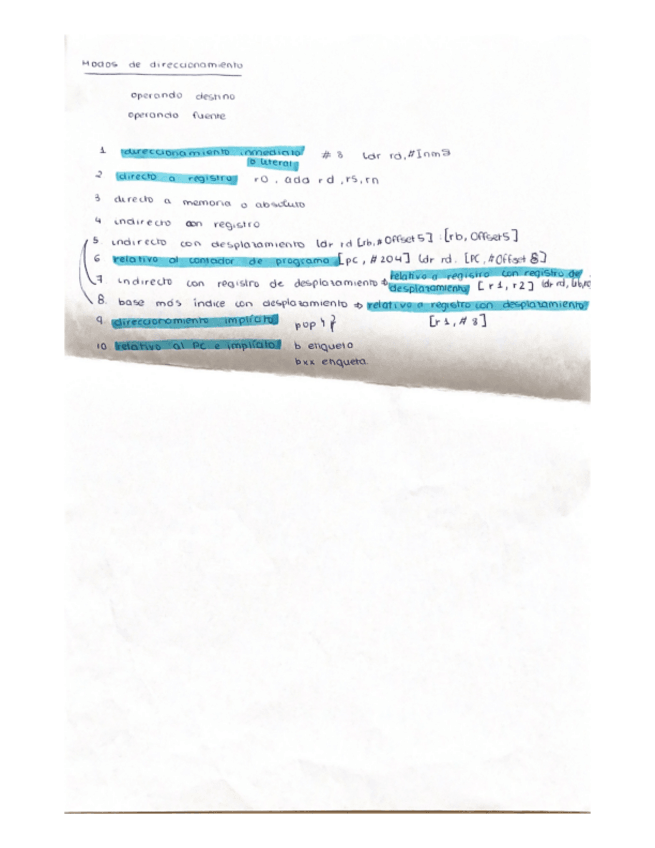 Modos de direccionamiento
operando destino
operando fuente
1 direccionamiento inmediato # 8 ldr rd, #Inm8
o literal
2 directo a registro r0, add rd, rs, rn
3 directo a memoria o absoluto
4 indirecto con registro
5. indirecto con desplazamiento ldr rd [rb, #Offset5] [rb, Offset5]
6 relativo al contador de programa [PC, #204] ldr rd. [PC, #Offset 8]
7. indirecto con registro de desplazamiento relativo a registro con registro de
desplazamiento [r1, r2] ldr rd,
8. base más índice con desplazamiento relativo a registro con desplazamiento
9. direccionamiento implícito pop { } [r1, #8]
10 relativo al PC e implícito b etiqueta
bxx etiqueta.